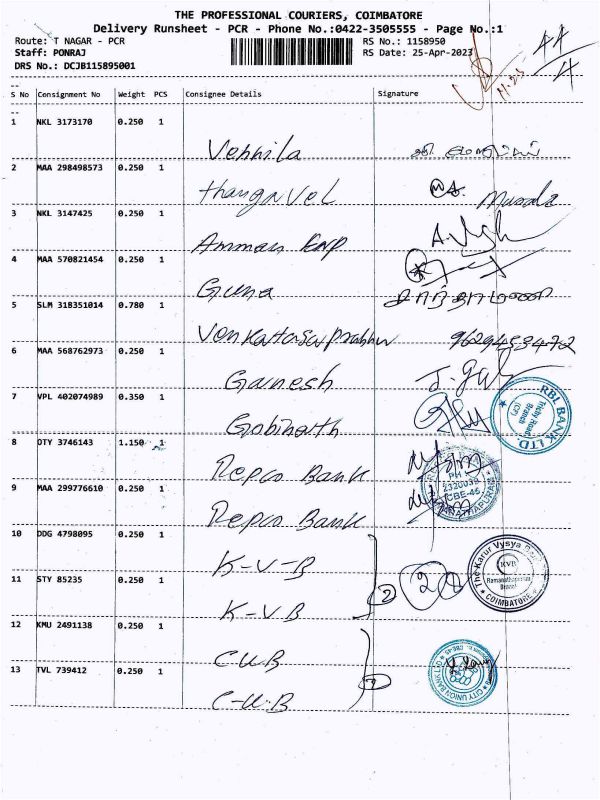 THE PROFESSIONAL COURIERS, COIMBATORE
Delivery Runsheet - PCR - Phone No.:0422-3505555 - Page No.:1
Route: T NAGAR - PCR
RS No.: 1158950
Staff: PONRAJ
RS Date: 25-Apr-2023
DRS No.: DCJB115895001
44/4
S No Consignment No Weight PCS Consignee Details Signature
1 NKL 3173170 0.250 1
Vennila
2 MAA 298498573 0.250 1
thangavel
3 NKL 3147425 0.250 1
Amman Enp
4 MAA 570821454 0.250 1
Guna
5 SLM 318351014 0.780 1
Venkatasaprabhu 9629453472
6 MAA 568762973 0.250 1
Ganesh
7 VPL 402074989 0.350 1
Gobinath
RBL BANK LTD.
Trichy Road
Branch
8 OTY 3746143 1.150 1
Repco Bank
PH
2320039
CBE-45
9 MAA 299776610 0.250 1
Repco Bank
10 DDG 4798095 0.250 1
K-V-B
The Karur Vysya Bank
KVB
Ramanathapuram
Branch
COIMBATORE
11 STY 85235 0.250 1
K-VB
2
2
12 KMU 2491138 0.250 1
CUB
CITY UNION BANK LTD
13 TVL 739412 0.250 1
C-U.B